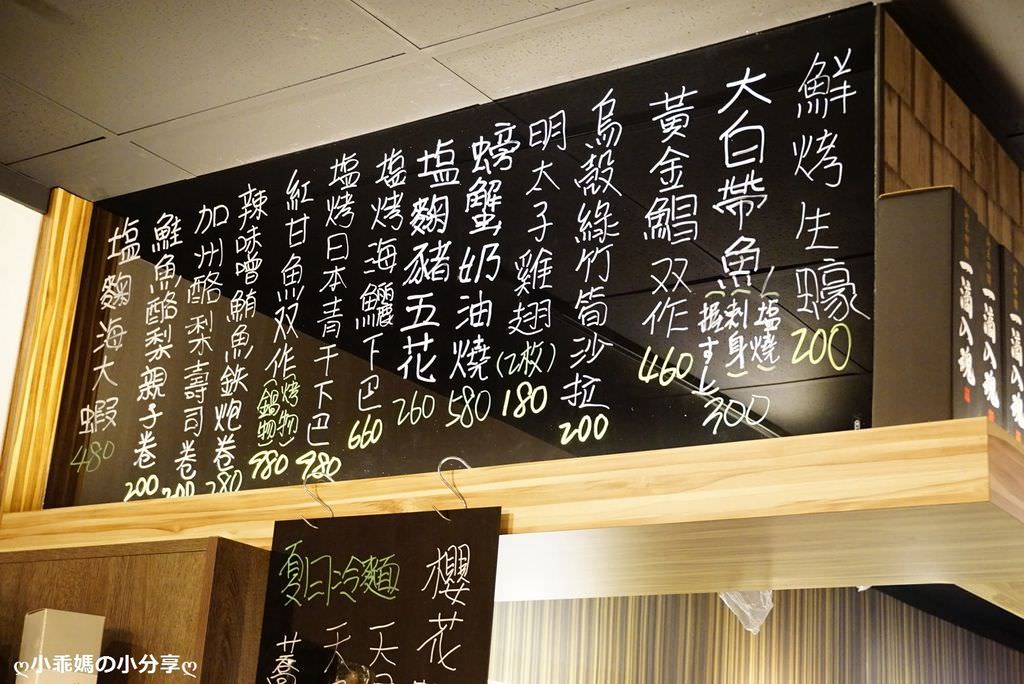 鮮烤生蠔200
大白帶魚(塩燒 刺身 握すし)300
黃金鯧双作460
烏殼綠竹筍沙拉200
明太子雞翅(2枚)180
螃蟹奶油燒580
塩麴豬五花260
塩烤海鱺下巴660
塩烤日本青干下巴980
紅甘魚双作(烤物 鍋物)980
辣味噌鮪魚鉄炮卷280
加州酪梨壽司卷200
鮭魚酪梨親子卷200
塩麴海大蝦480
櫻花
夏日冷麵
天
天
蕎
一滴入魂
一滴入魂
一滴入魂
ღ小乖媽の小分享ღ